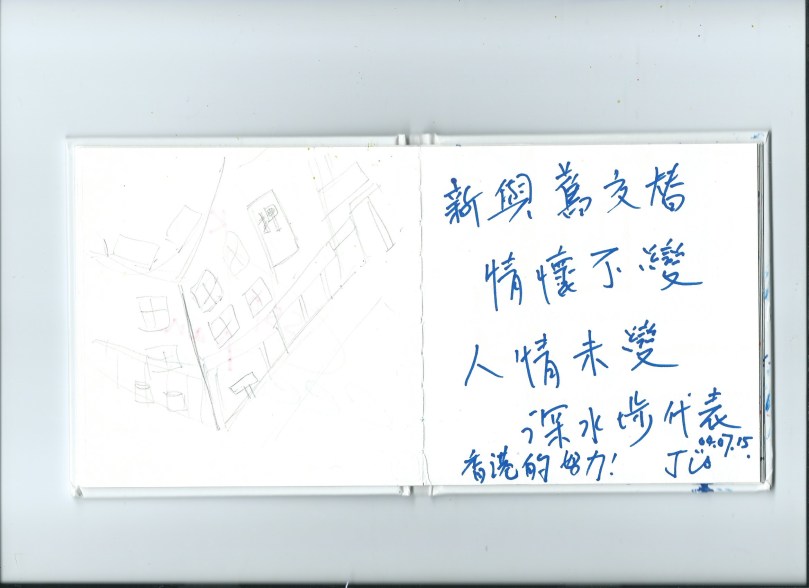 押
新與舊交替
情懷不變
人情未變
深水埗代表
香港的努力!
04.07.15.